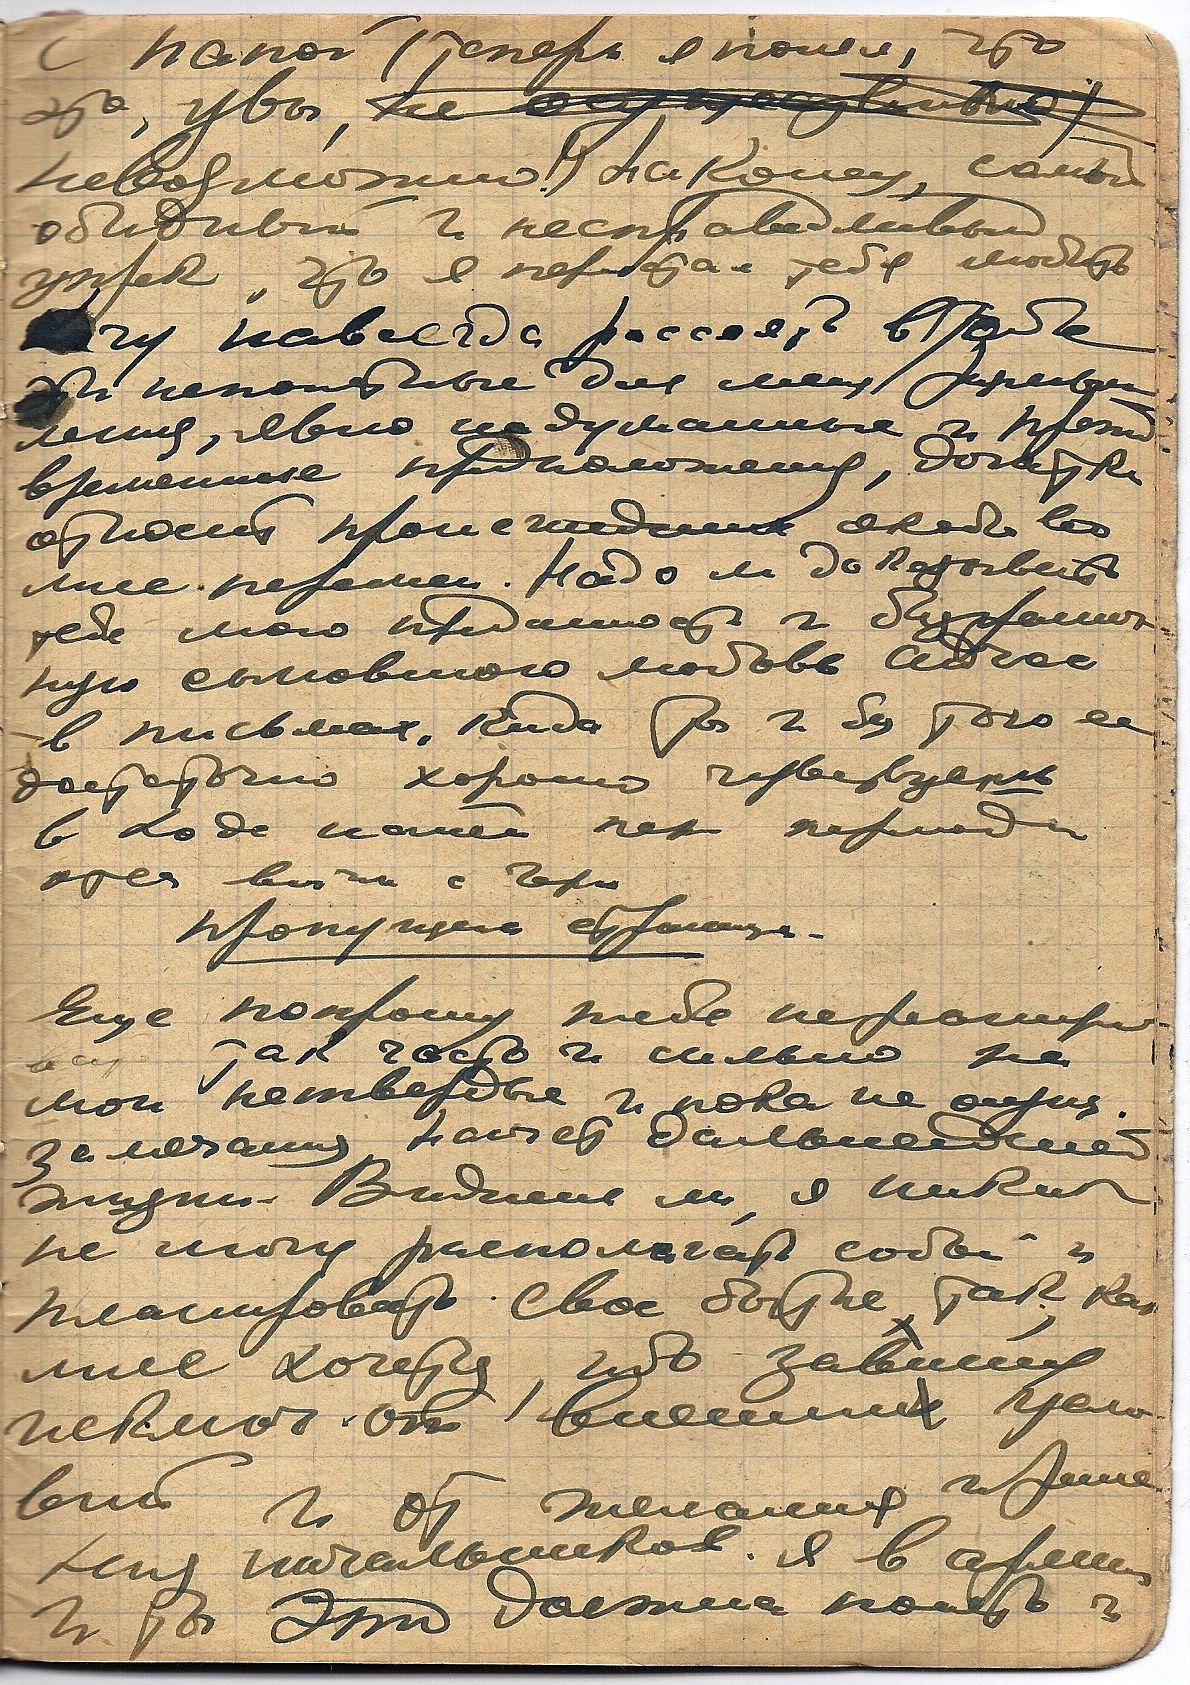 с папой (теперь я понял, что
это, увы, не
невозможно!) Наконец, самый
обидный и несправедливый
упрек, что я перестал тебя любить
Хочу навсегда рассеять в тебе
эти непонятные для меня
явно надуманные и
временные предположения, догадки
относит. происшедших якобы во
мне перемен. Надо ли доказывать
тебе мою преданность и безгранич
ную сыновнюю любовь сейчас
в письмах, когда ты и без того ее
достаточно хорошо чувствуешь
в ходе нашей пер
пропущена страница.
Еще попрошу тебя не реагиро
вать так часто и сильно на
мои нетвердые и пока не
замечания насчет дальнейшей
жизни. Видишь ли, я никак
не могу располагать собой и
планировать свое бытие, так, как
мне хочется, ибо завишу
исключ. от внешних усло
вий и от желания и реше
ния начальников. Я в армии,
и ты это должна понять и